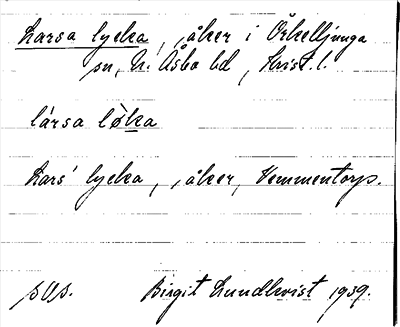 Larsa lycka, åker i Örkelljunga
sn, N. Åsbo hd, Krist. l.
lársa lø̀ka
Lars' lycka, åker, Vemmentorp.
s Os. Birgit Lundkvist 1939.